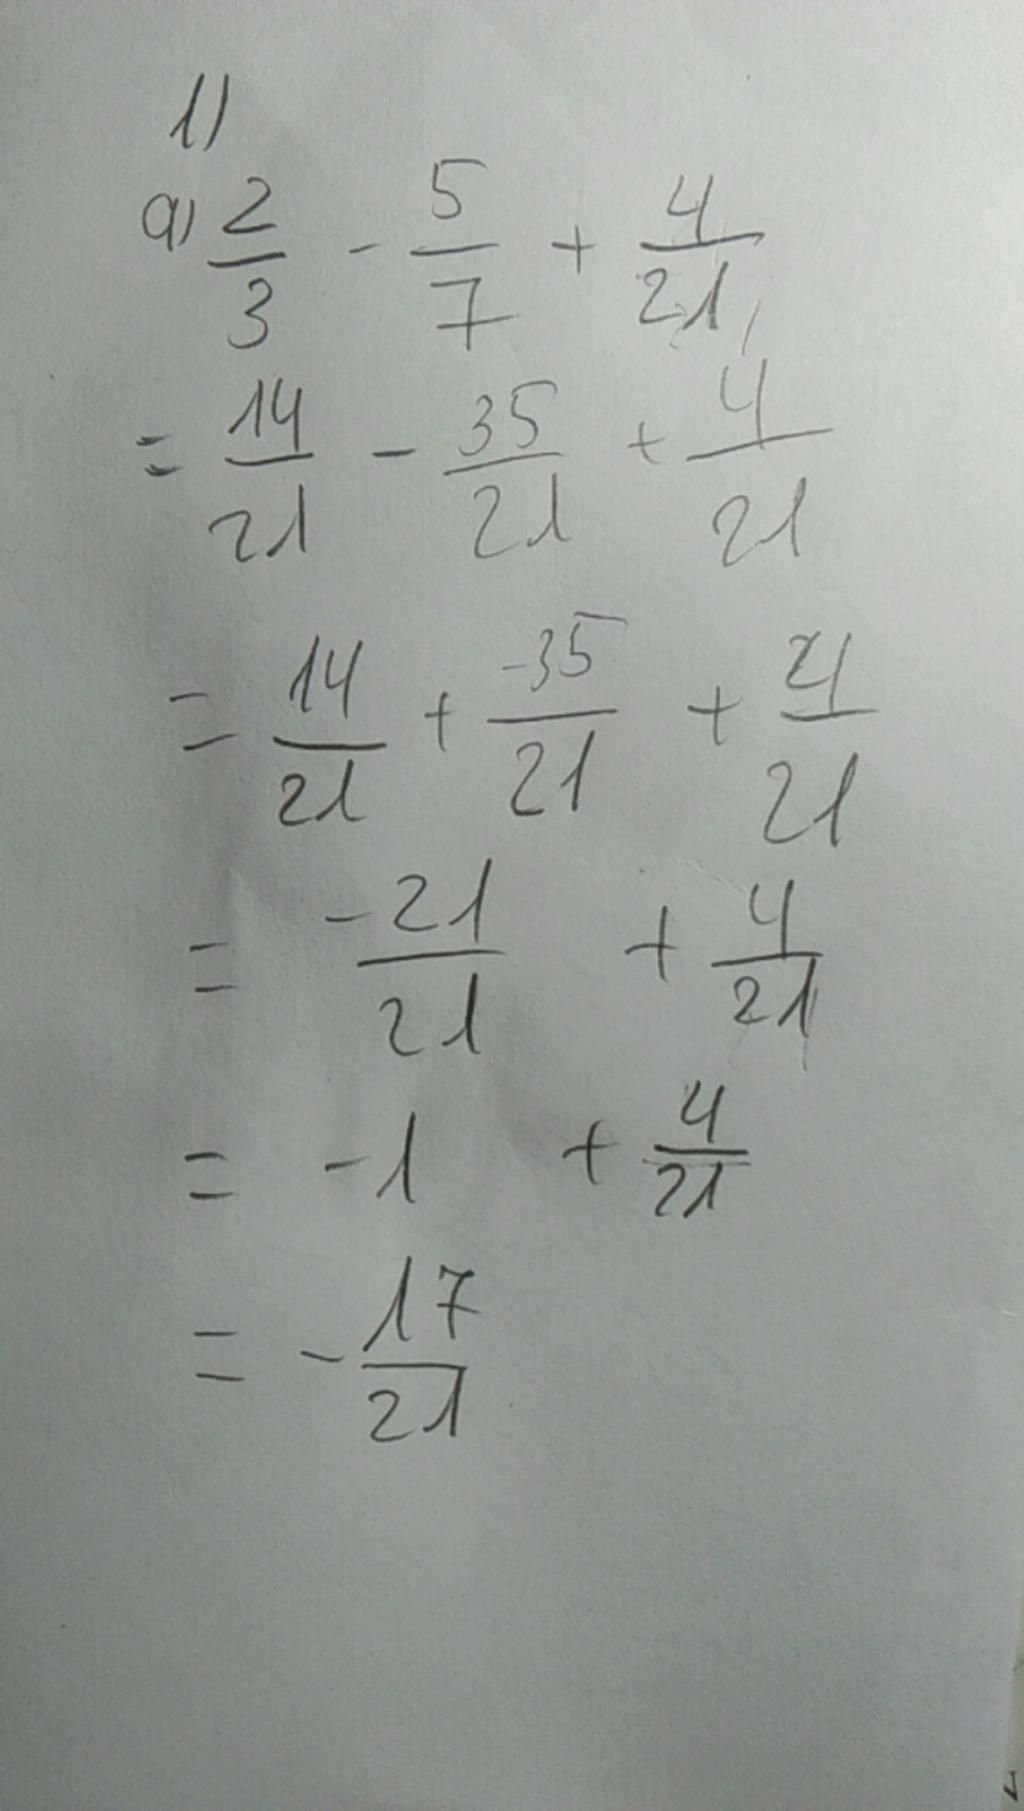 1)
a) 2/3 - 5/7 + 4/21
= 14/21 - 35/21 + 4/21
= 14/21 + -35/21 + 4/21
= -21/21 + 4/21
= -1 + 4/21
= -17/21